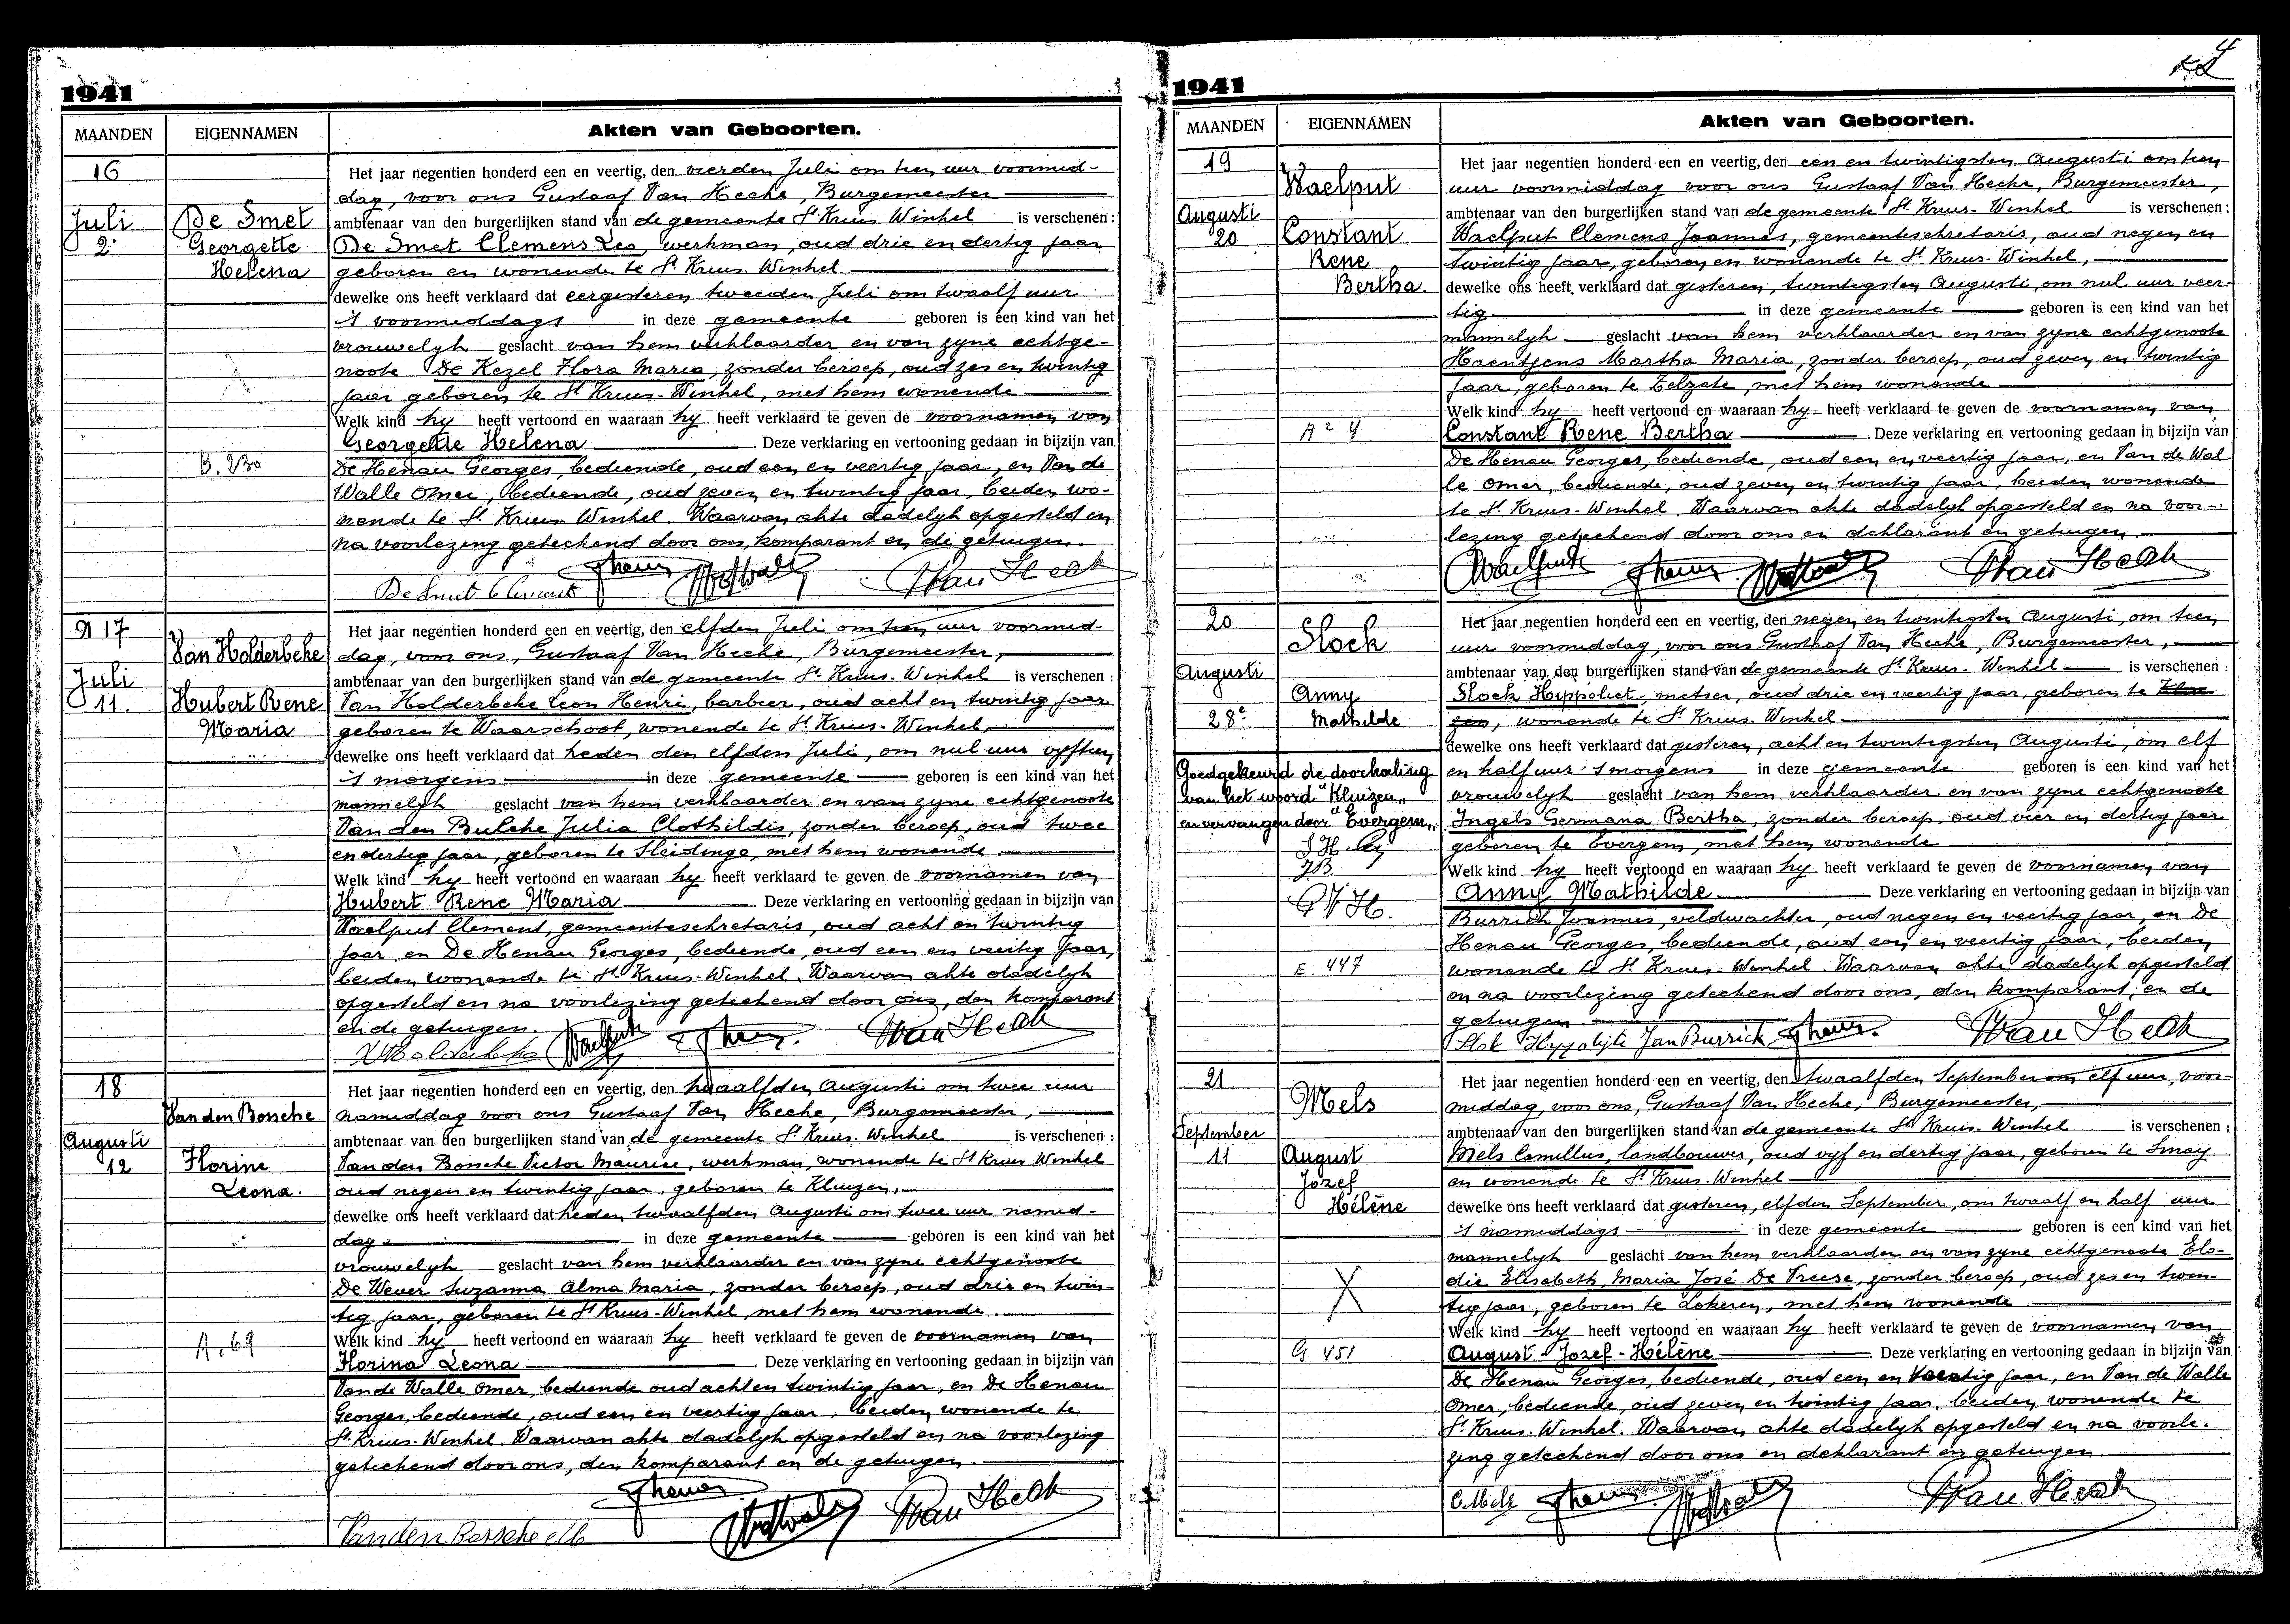 1941
MAANDEN EIGENNAMEN Akten van Geboorten.
16
Juli
2.
De Smet
Georgette
Helena
B. 230
Het jaar negentien honderd een en veertig, den vierden Juli om tien uur voormid-
dag, voor ons Gustaaf Van Hecke, Burgemeester
ambtenaar van den burgerlijken stand van de gemeente St Kruis Winkel is verschenen :
De Smet Clemens Leo, werkman, oud drie en dertig jaar
geboren en wonende te St Kruis-Winkel
dewelke ons heeft verklaard dat eergisteren tweeden Juli om twaalf uur
's voormiddags in deze gemeente geboren is een kind van het
vrouwelyk geslacht van hem verklaarder en van zyne echtge-
noote De Kezel Flora Maria, zonder beroep, oud zes en twintig
jaar geboren te St Kruis-Winkel, met hem wonende
Welk kind hy heeft vertoond en waaraan hy heeft verklaard te geven de voornamen van
Georgette Helena Deze verklaring en vertooning gedaan in bijzijn van
De Henau Georges, bediende, oud een en veertig jaar, en Van de
Walle Omer, bediende, oud zeven en twintig jaar, beiden wo-
nende te St Kruis Winkel. Waarvan akte dadelyk opgesteld en
na voorlezing geteekend door ons, komparant en de getuigen.
De Smet Clement
N 17
Juli
11.
Van Holderbeke
Hubert Rene
Maria
Het jaar negentien honderd een en veertig, den elfden Juli om tien uur voormid-
dag, voor ons, Gustaaf Van Hecke, Burgemeester,
ambtenaar van den burgerlijken stand van de gemeente St Kruis-Winkel is verschenen :
Van Holderbeke Leon Henri, barbier, oud acht en twintig jaar
geboren te Waarschoot, wonende te St Kruis-Winkel,
dewelke ons heeft verklaard dat heden den elfden Juli, om nul uur vyftien
's morgens in deze gemeente geboren is een kind van het
mannelyk geslacht van hem verklaarder en van zyne echtgenoote
Van den Bulcke Julia Clothildis, zonder beroep, oud twee
en dertig jaar, geboren te Sleidinge, met hem wonende
Welk kind hy heeft vertoond en waaraan hy heeft verklaard te geven de voornamen van
Hubert Rene Maria Deze verklaring en vertooning gedaan in bijzijn van
Waelput Clement, gemeentesekretaris, oud acht en twintig
jaar, en De Henau Georges, bediende, oud een en veertig jaar,
beiden wonende te St Kruis-Winkel. Waarvan akte dadelyk
opgesteld en na voorlezing geteekend door ons, den komparant
en de getuigen.
18
Augusti
12
Van den Bossche
Florine
Leona.
A. 69
Het jaar negentien honderd een en veertig, den twaalfden Augusti om twee uur
namiddag voor ons Gustaaf Van Hecke, Burgemeester,
ambtenaar van den burgerlijken stand van de gemeente St Kruis-Winkel is verschenen :
Van den Bossche Victor Maurise, werkman, wonende te St Kruis Winkel
oud negen en twintig jaar, geboren te Kluizen,
dewelke ons heeft verklaard dat heden twaalfden Augusti om twee uur namid-
dag in deze gemeente geboren is een kind van het
vrouwelyk geslacht van hem verklaarder en van zyne echtgenoote
De Wever Suzanna Alma Maria, zonder beroep, oud drie en twin-
tig jaar, geboren te St Kruis-Winkel, met hem wonende
Welk kind hy heeft vertoond en waaraan hy heeft verklaard te geven de voornamen van
Florina Leona Deze verklaring en vertooning gedaan in bijzijn van
Van de Walle Omer, bediende oud acht en twintig jaar, en De Henau
Georges, bediende, oud een en veertig jaar, beiden wonende te
St Kruis-Winkel. Waarvan akte dadelyk opgesteld en na voorlezing
geteekend door ons, den komparant en de getuigen.
1941
4
MAANDEN EIGENNAMEN Akten van Geboorten.
19
Augusti
20
Waelput
Constant
Rene
Bertha.
A 2 4
Het jaar negentien honderd een en veertig, den een en twintigsten Augusti om tien
uur voormiddag voor ons Gustaaf Van Hecke, Burgemeester,
ambtenaar van den burgerlijken stand van de gemeente St Kruis-Winkel is verschenen :
Waelput Clemens Joannes, gemeentesekretaris, oud negen en
twintig jaar, geboren en wonende te St Kruis-Winkel,
dewelke ons heeft verklaard dat gisteren, twintigsten Augusti, om nul uur veer-
tig in deze gemeente geboren is een kind van het
mannelyk geslacht van hem verklaarder en van zyne echtgenoote
Haentjens Martha Maria, zonder beroep, oud zeven en twintig
jaar, geboren te Zelzate, met hem wonende
Welk kind hy heeft vertoond en waaraan hy heeft verklaard te geven de voornamen van
Constant Rene Bertha Deze verklaring en vertooning gedaan in bijzijn van
De Henau Georges, bediende, oud een en veertig jaar, en Van de Wal-
le Omer, bediende, oud zeven en twintig jaar, beiden wonende
te St Kruis-Winkel. Waarvan akte dadelyk opgesteld en na voor-
lezing geteekend door ons en deklarant en getuigen.
20
Augusti
28e
Slock
Anny
Mathilde
Goedgekeurd de doorhaling
van het woord "Kluizen"
en vervangen door "Evergem"
E. 447
Het jaar negentien honderd een en veertig, den negen en twintigsten Augusti, om tien
uur voormiddag, voor ons Gustaaf Van Hecke, Burgemeester,
ambtenaar van den burgerlijken stand van de gemeente St Kruis-Winkel is verschenen :
Slock Hippoliet, metser, oud drie en veertig jaar, geboren te Klui-
zen, wonende te St Kruis-Winkel
dewelke ons heeft verklaard dat gisteren, acht en twintigsten Augusti, om elf
en half uur 's morgens in deze gemeente geboren is een kind van het
vrouwelyk geslacht van hem verklaarder en van zyne echtgenoote
Ingels Germana Bertha, zonder beroep, oud vier en dertig jaar
geboren te Evergem, met hem wonende
Welk kind hy heeft vertoond en waaraan hy heeft verklaard te geven de voornamen van
Anny Mathilde Deze verklaring en vertooning gedaan in bijzijn van
Burrick Joannes, veldwachter, oud negen en veertig jaar, en De
Henau Georges, bediende, oud een en veertig jaar, beiden
wonende te St Kruis-Winkel. Waarvan akte dadelyk opgesteld
en na voorlezing geteekend door ons, den komparant, en de
getuigen.
Slok Hyppolijte Jan Burrick
21
September
11
Mels
August
Jozef
Hélène
G 451
Het jaar negentien honderd een en veertig, den twaalfden September om elf uur, voor-
middag, voor ons, Gustaaf Van Hecke, Burgemeester,
ambtenaar van den burgerlijken stand van de gemeente St Kruis-Winkel is verschenen :
Mels Camillus, landbouwer, oud vyf en dertig jaar, geboren te Sinay
en wonende te St Kruis-Winkel
dewelke ons heeft verklaard dat gisteren, elfden September, om twaalf en half uur
's namiddags in deze gemeente geboren is een kind van het
mannelyk geslacht van hem verklaarder en van zyne echtgenoote Elo-
die Elisabeth Maria José De Treese, zonder beroep, oud zes en twin-
tig jaar, geboren te Lokeren, met hem wonende
Welk kind hy heeft vertoond en waaraan hy heeft verklaard te geven de voornamen van
August-Jozef-Hélène Deze verklaring en vertooning gedaan in bijzijn van
De Henau Georges, bediende, oud een en veertig jaar, en Van de Walle
Omer, bediende, oud zeven en twintig jaar, beiden wonende te
St Kruis-Winkel. Waarvan akte dadelyk opgesteld en na voorle-
zing geteekend door ons en deklarant en getuigen.
C. Mels